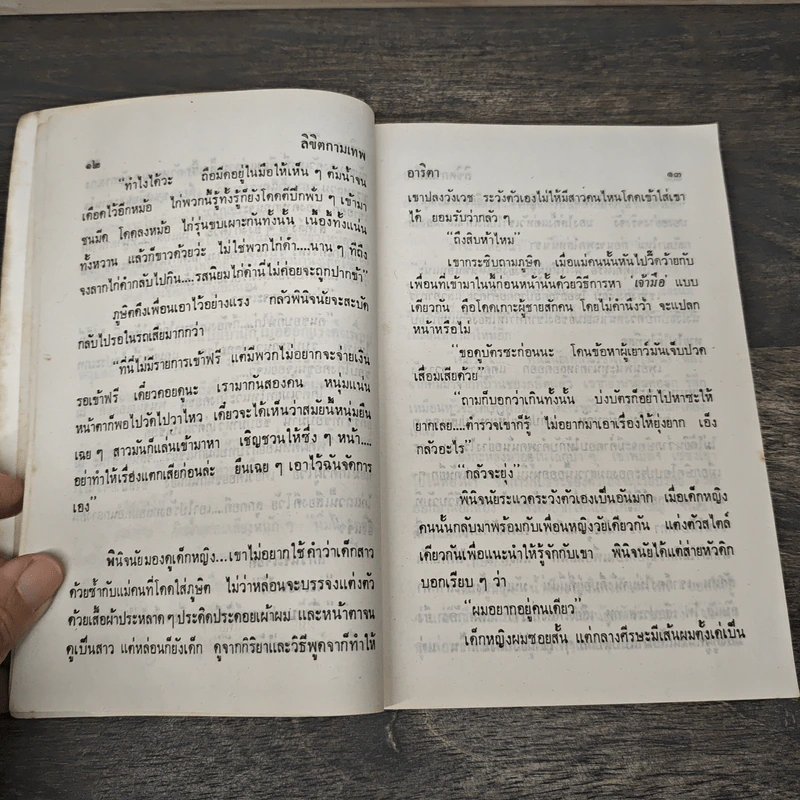 ๑๒
ลิขิตกามเทพ
“ทำไงได้วะ ถือมีดอยู่ในมือให้เห็น ๆ ต้มน้ำจน
เดือดไว้อีกหม้อ ไก่พวกนี้รู้ทั้งรู้ก็ยังโดดตีปีกพั่บ ๆ เข้ามา
ชนมีด โดดลงหม้อ ไก่รุ่นขบเผาะกันทั้งนั้น เนื้องี้ทั้งแน่น
ทั้งหวาน แล้วก็ขาวด้วยว่ะ ไม่ใช่พวกไก่ดำ....นาน ๆ ทีถึง
จงลากไก่ดำกลับไปกิน....รสนิยมไก่ดำนี่ไม่ค่อยจะถูกปากข้า”
ภูษิตดึงเพื่อนเอาไว้อย่างแรง กลัวพินิจนัยจะสะบัด
กลับไปรอในรถเสียมากกว่า
“ที่นี่ไม่มีรายการเข้าฟรี แต่มีพวกไม่อยากจะจ่ายเงิน
รอเข้าฟรี เดี๋ยวคอยดูนะ เรามากันสองคน หนุ่มแน่น
หน้าตาก็พอไปวัดไปวาไหว เดี๋ยวจะได้เห็นว่าสมัยนี้หนุ่มยืน
เฉย ๆ สาวมันก็แล่นเข้ามาหา เชิญชวนให้ซึ่ง ๆ หน้า....
อย่าทำให้เรื่องแตกเสียก่อนล่ะ ยืนเฉย ๆ เอาไว้ฉันจัดการ
เอง”
พินิจนัยมองดูเด็กหญิง...เขาไม่อยากใช้คำว่าเด็กสาว
ด้วยซ้ำกับแม่คนที่โดดใส่ภูษิต ไม่ว่าหล่อนจะบรรจงแต่งตัว
ด้วยเสื้อผ้าประหลาด ๆ ประดิดประดอยเผ้าผม และหน้าตาจน
ดูเป็นสาว แต่หล่อนก็ยังเด็ก ดูจากกิริยาและวิธีพูดจาก็ทำให้
อาริตา
๑๓
เขาปลงวังเวช ระวังตัวเองไม่ให้มีสาวคนไหนโดดเข้าใส่เขา
ได้ ยอมรับว่ากลัว ๆ
“ถึงสิบห้าไหม”
เขากระซิบถามภูษิต เมื่อแม่คนนั้นหันไปวี้ดว้ายกับ
เพื่อนที่เข้ามาในนี้ก่อนหน้านั้นด้วยวิธีการหา ‘เจ้ามือ’ แบบ
เดียวกัน คือโดดเกาะผู้ชายสักคน โดยไม่คำนึงว่า จะแปลก
หน้าหรือไม่
“ขอดูบัตรซะก่อนนะ โดนข้อหาผู้เยาว์มันเจ็บปวด
เสื่อมเสียด้วย”
“ถามก็บอกว่าเกินทั้งนั้น บ่งบัตรก็อย่าไปหาซะให้
ยากเลย....ตำรวจเขาก็รู้ ไม่อยากมาเอาเรื่องให้ยุ่งยาก เอ็ง
กลัวอะไร”
“กลัวจะยุ่ง”
พินิจนัยระแวดระวังตัวเองเป็นอันมาก เมื่อเด็กหญิง
คนนั้นกลับมาพร้อมกับเพื่อนหญิงวัยเดียวกัน แต่งตัวสไตล์
เดียวกันเพื่อแนะนำให้รู้จักกับเขา พินิจนัยได้แต่ส่ายหัวดิก
บอกเรียบ ๆ ว่า
“ผมอยากอยู่คนเดียว”
เด็กหญิงผมซอยสั้น แต่กลางศีรษะมีเส้นผมตั้งเด่เป็น